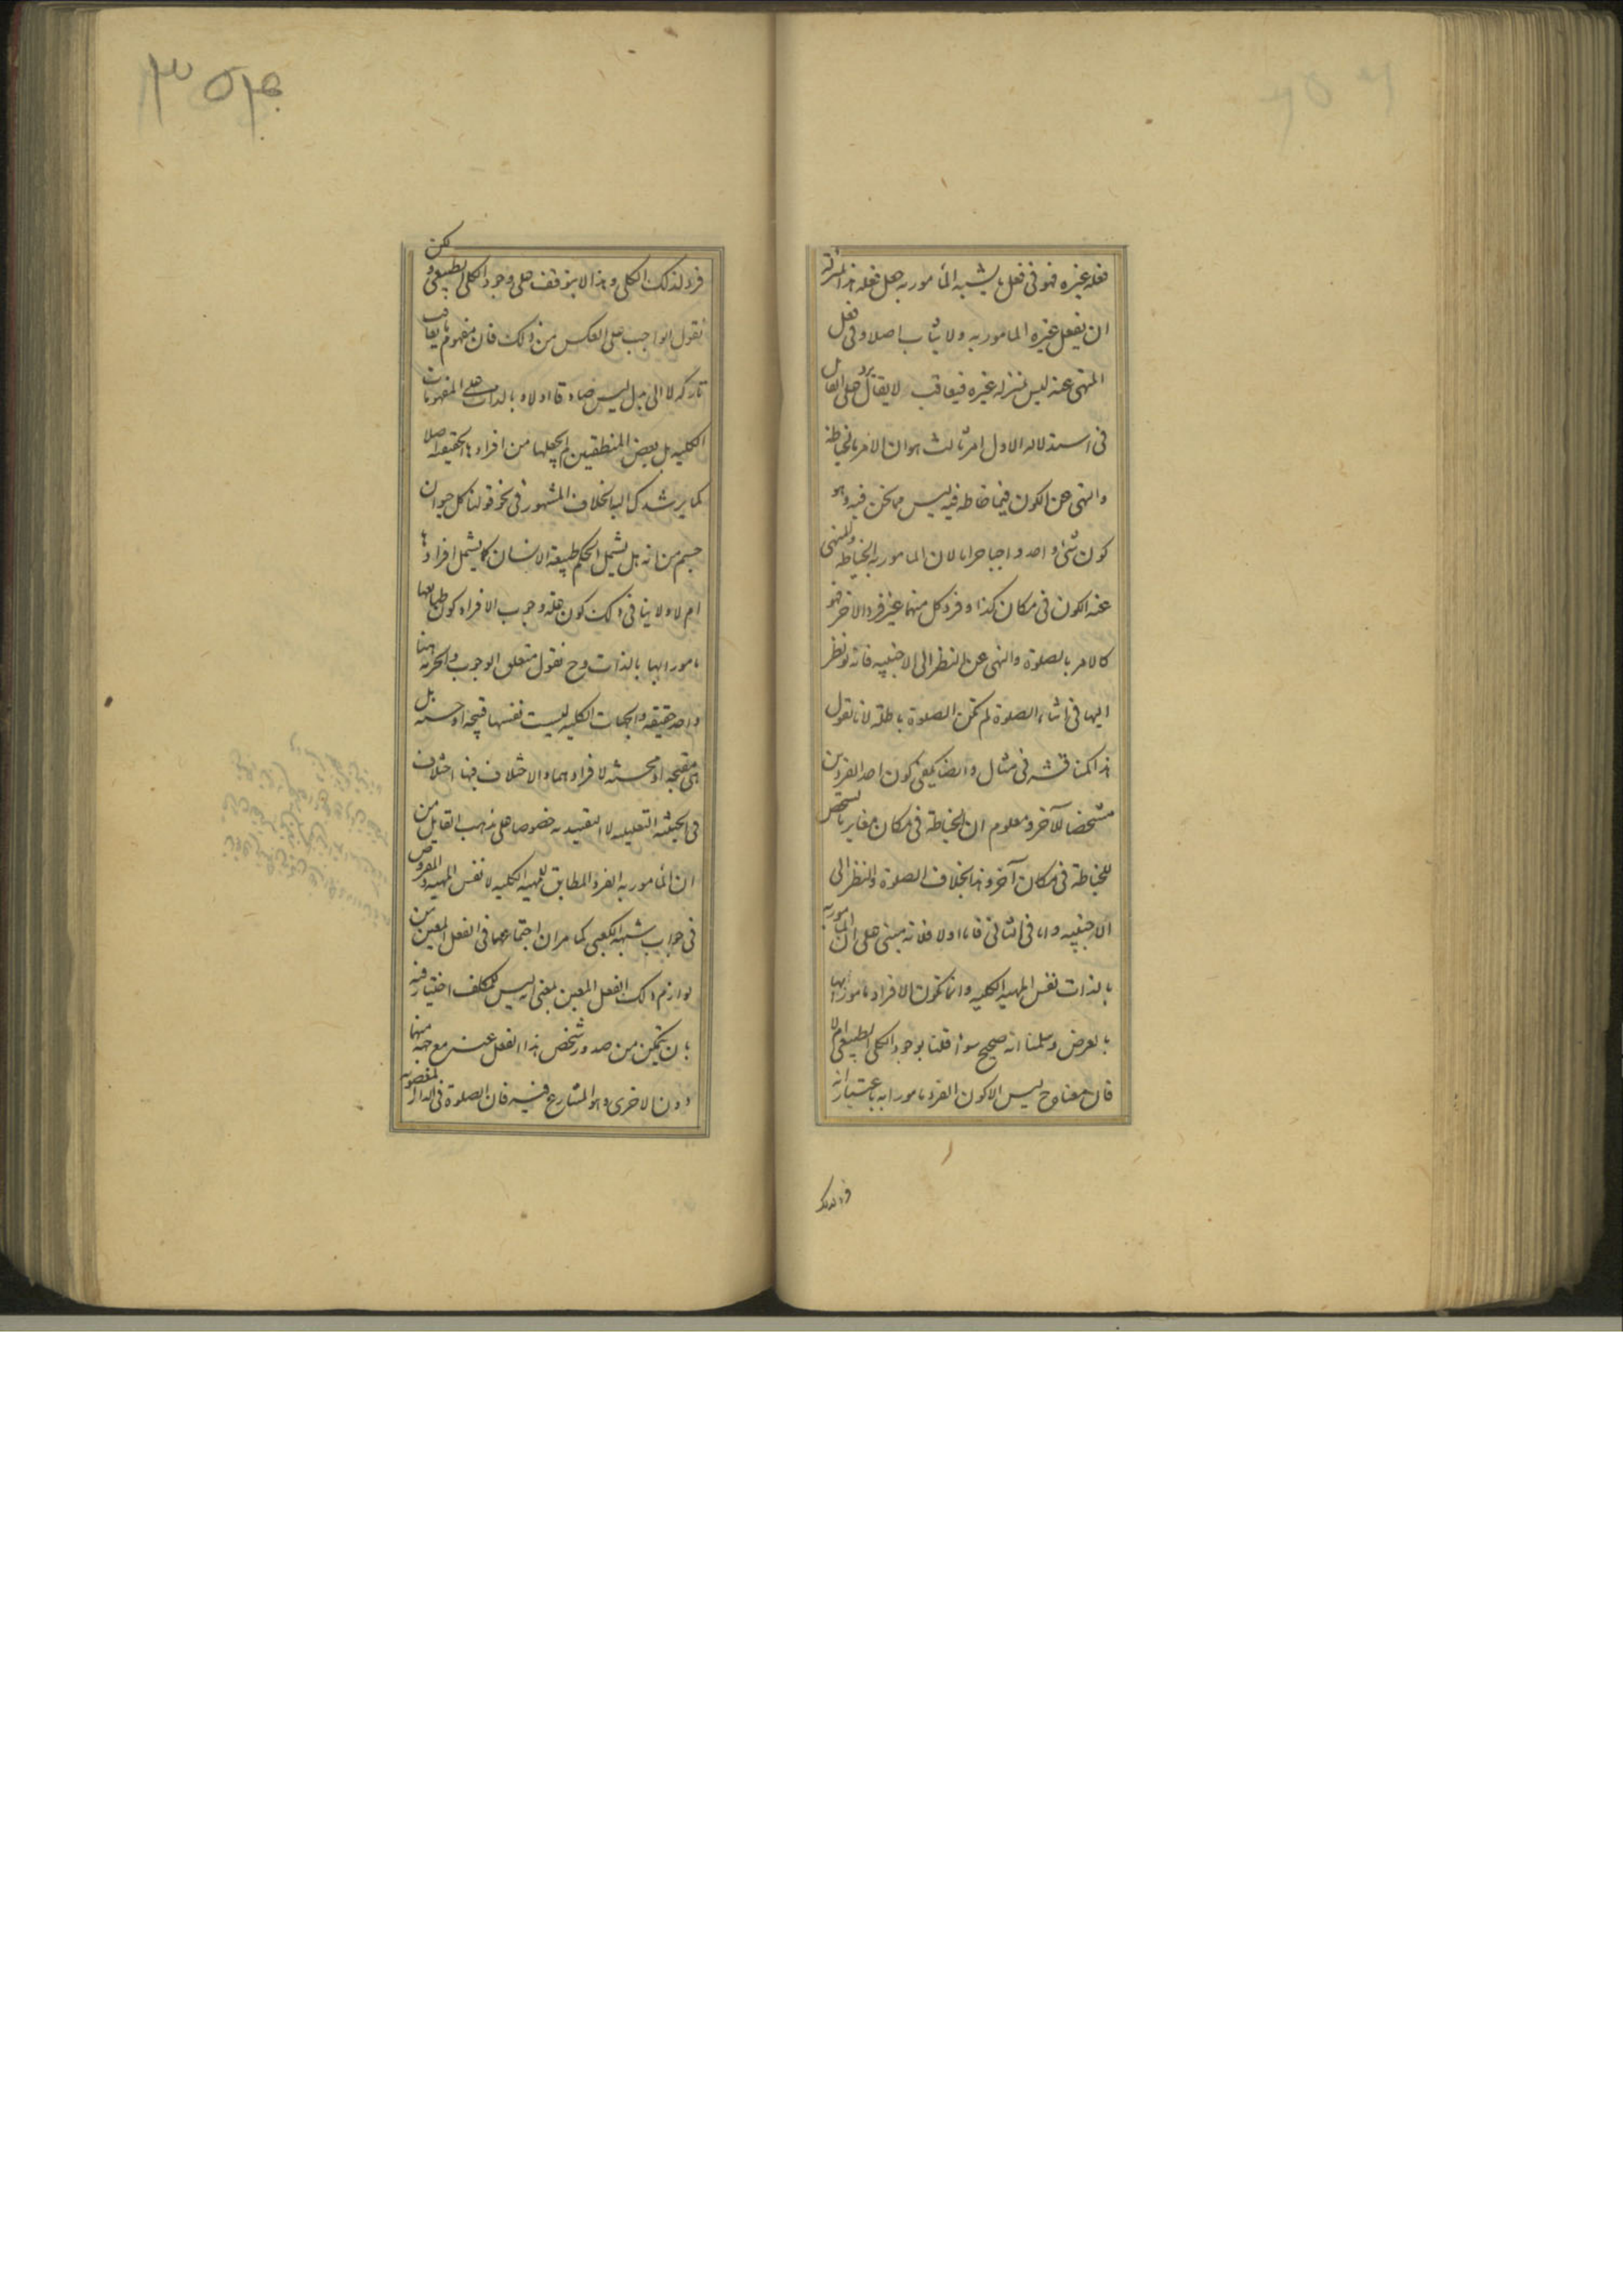 فعله غيره فهو فى فعل ما يشبه المأمور به جعل فعله بمنزلة
ان يفعل غيره المامور به ولا يثاب اصلا وفى فعل
المنهى عنه ليس بمنزله غيره فيعاقب لا يقال يرد على القائل
فى استدلاله الاول امر ثالث هو ان الامر بالخياطة
والنهى عن الكون فيما خاطه فيه ليس مما نحن فيه وهو
كون شئ واحد واجبا حراما لان المامور به الخياطه والمنهى
عنه الكون فى مكان كذا وفرد كل منهما غير فرد الاخر فهو
كالامر بالصلوة والنهى عن النظر الى الاجنبيه فانه لو نظر
اليها فى اثناء الصلوة لم تكن الصلوة باطلة لانا نقول
هذا كمناقشه فى مثال وايضا يكفى كون احد الفردين
مشخصا للآخر ومعلوم ان الخياطة فى مكان مغاير بالشخص
للخياطة فى مكان آخر وهذا بخلاف الصلوة والنظر الى
الاجنبيه واما فى الثانى فاما اولا فلانه مبنى على ان المامور به
بالذات نفس المهيه الكليه وانما تكون الافراد مامورا بها
بالعرض وسلمنا انه صحيح سواء قلنا بوجود الكلى الطبيعى ام لا
فان معناه ح ليس الا كون الفرد مامورا به باعتبار انه
فرد لذلك
فرد لذلك الكلى وهذا لا يتوقف على وجود الكلى الطبيعى و لكن
نقول الواجب على العكس من ذلك فان مفهوم ما يعاقب
تاركه لا الى بدل ليس صادقا اولا وبالذات على المفهومات
الكليه بل بعض المنطقيين لم يجعلها من افرادها الحقيقه اصلا
كما يرشدك اليه الخلاف المشهور فى نحو قولنا كل حيوان
جسم من انه بل يشمل الحكم طبيعة الانسان كما يشمل افرادها
ام لا ولا ينافى ذلك كون علة وجوب الافراد كون طبايعها
مامورا بها بالذات وح نقول متعلق الوجوب والحرمة هنا
واحد حقيقه والجهات الكليه ليست نفسها قبيحه او حسنه بل
هى مقبحه او محسنه لافرادهما والاختلاف فيها اختلاف
فى الحيثيه التعليليه لا التقييديه خصوصا على مذهب القايل من
ان المأمور به الفرد المطابق للمهيه الكليه لا نفس المهيه والمفروض
فى جواب شبهه الكعبى كما مر ان اجتماعهما فى الفعل المعين من
لوازم ذلك الفعل المعين بمعنى انه ليس للمكلف اختيار فيه
بان يتمكن من صدور شخص هذا الفعل عنه مع جهة منهما
دون الاخرى وهو المتنازع فيه فان الصلوة فى الدار المغصوبه